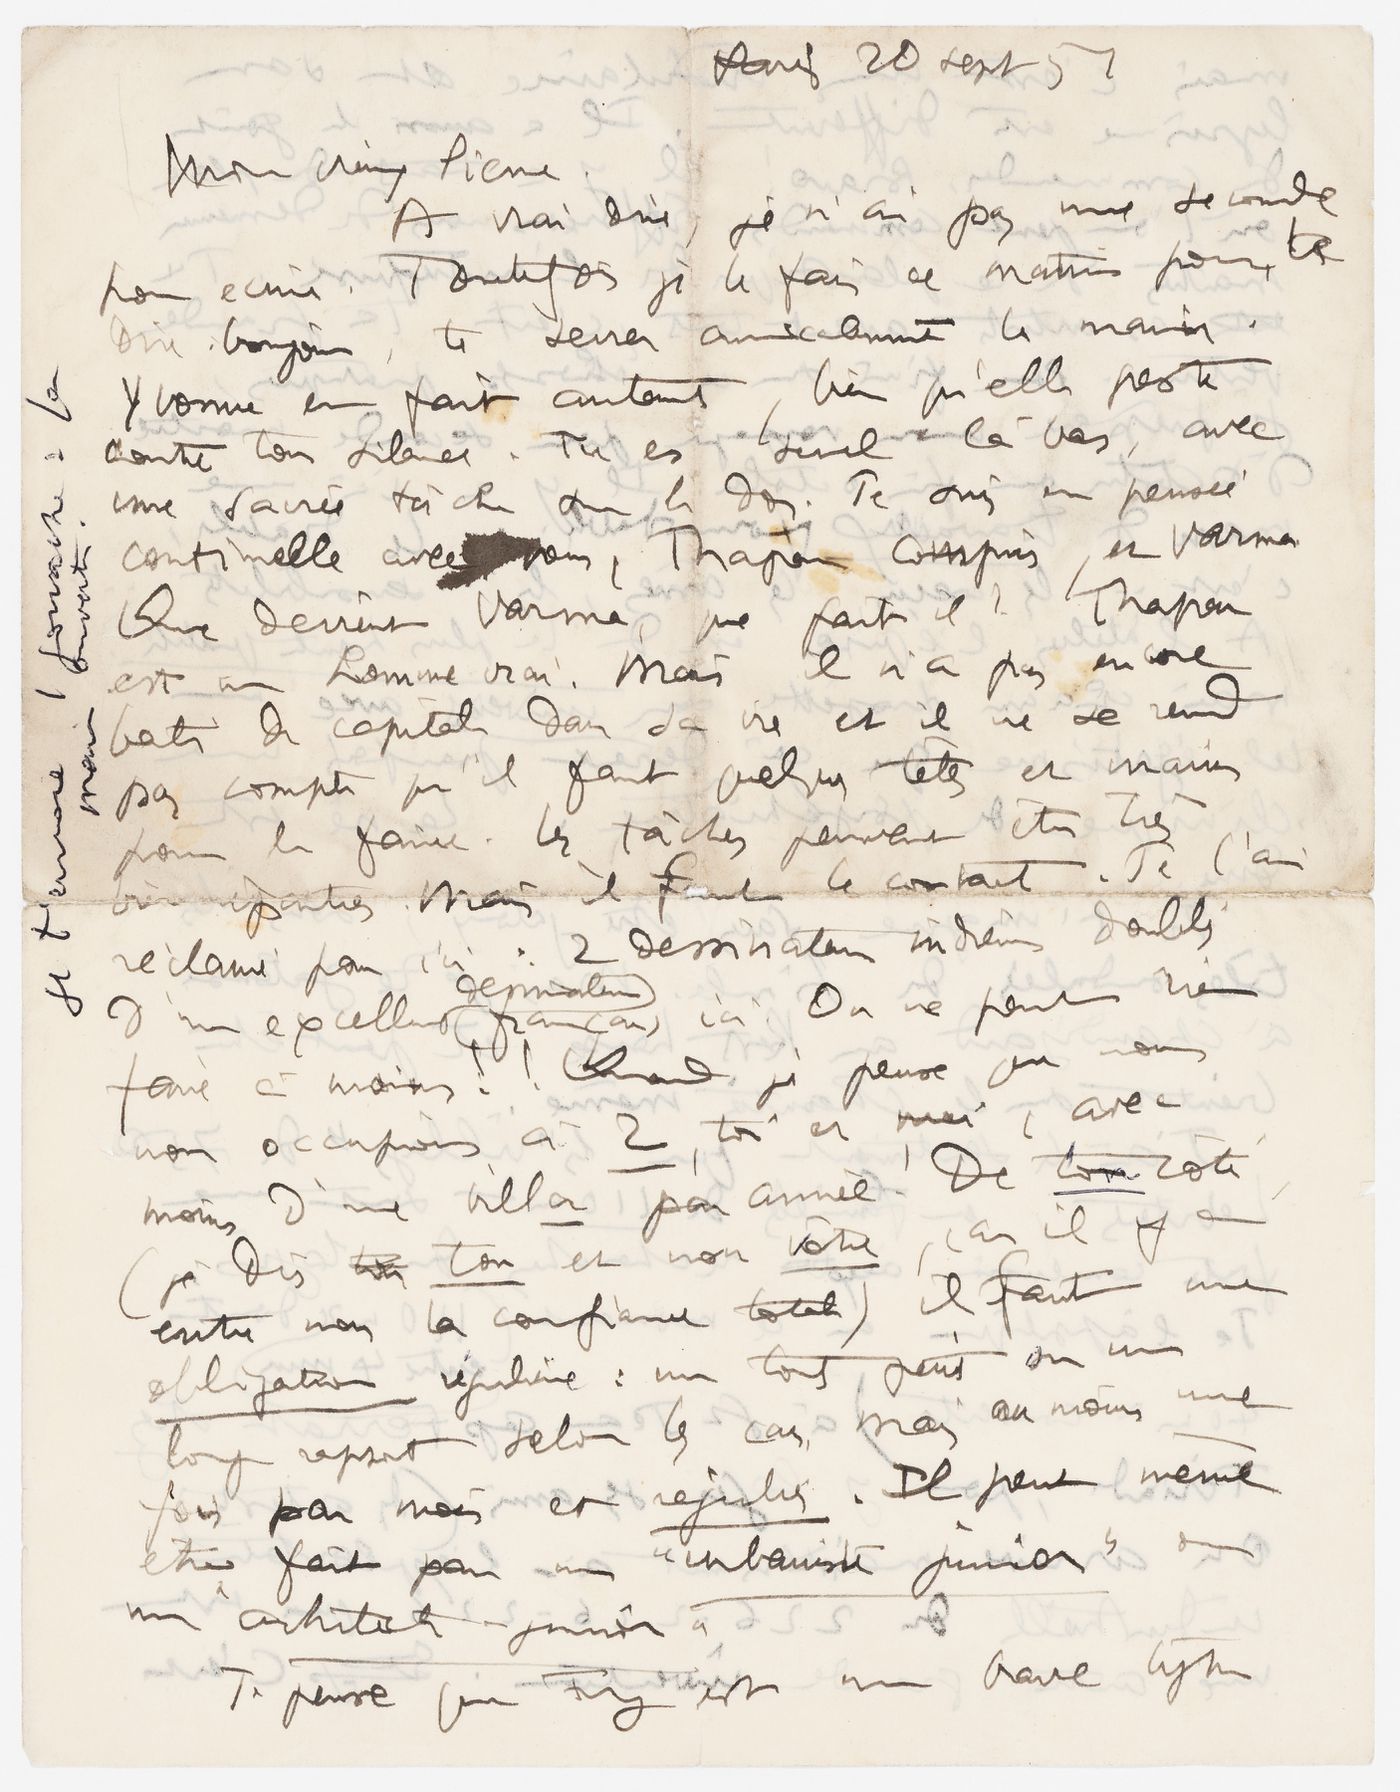 Paris 20 sept 51
Mon vieux Pierre.
A vrai dire, je n'ai pas une seconde
pour ecrire. Toutefois je le fais ce matin pour te
dire bonjour, te serrer amicalement la main.
Yvonne en fait autant, bien qu'elle peste
contre ton silence. Tu es seul là bas, avec
une sacrée tâche sur le dos. Je suis en pensée
continuelle avec vous, Thapar compris, et Varma
Que devient Varma, que fait il? Thapar
est un homme vrai. Mais il n'a pas encore
bati de capitale dans sa vie et il ne se rend
pas compte qu'il faut quelques têtes et mains
pour le faire. Les tâches peuvent être très
bien réparties. Mais il faut le contact. Je l'ai
réclamé pour ici: 2 dessinateurs indiens doublés
dessinateur
d'un excellent (français) ici. On ne peut rien
faire à moins!! Quand je pense que nous
nous occupions à 2, toi et moi, avec
moins d'une villa par année! De ton côté,
(je dis ton et non vôtre, car il y a
entre nous la confiance totale) il faut une
obligation régulière: un tout petit ou un
long rapport selon les cas, mais au moins une
fois par mois et régulier. Il peut même
etre fait par un "urbaniste junior" ou
un "architecte-junior"
Je pense que Fry est un brave type
je t'envoie 1 fourache à la
main ouverte.